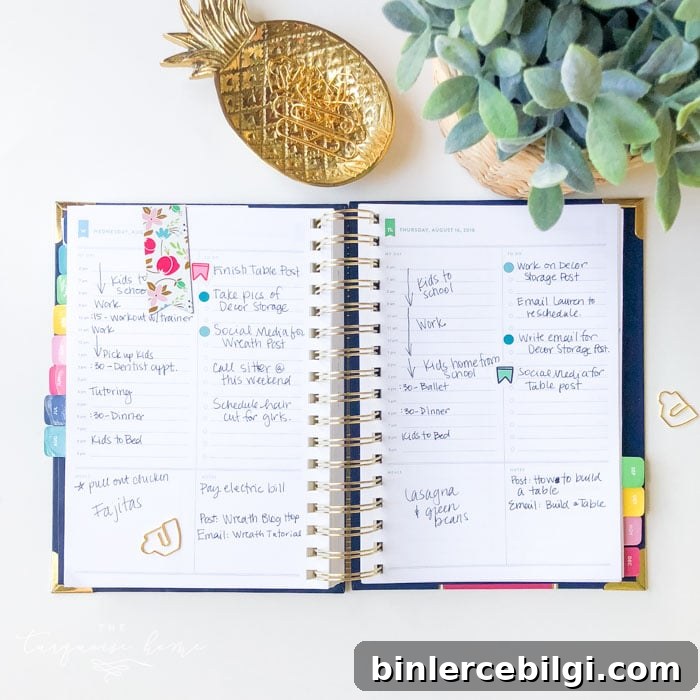 WEDNESDAY, AU
Kids to
school
Work
:15 - workout w/trainer
Work
Pick up kids
:30 - Dentist appt.
Tutoring
:30 - Dinner
Kids to Bed
Finish Table Post
Take pics of
Decor Storage
Social Media for
Wreath Post
Call sitter @
this weekend
Schedule hair
cut for girls.
* pull out chicken
Fajitas
NOTES
Pay electric bill
Post: Wreath Blog Hop
Email: Wreath Tutorial
THURSDAY, AUGUST 16, 2018
Kids to
school
Work
Kids home from
school
:30 - Ballet
:30 - Dinner
Kids to Bed
Work on Decor
Storage Post
Email Lauren to
reschedule.
Write email for
Decor Storage Post.
Social Media for
Table post
MEALS
Lasagna
& green
beans
NOTES
Post: How to build
a table
Email: Build a Table
SEP
OCT
NOV
DEC
THE
turquoise home
binlercebilgi.com